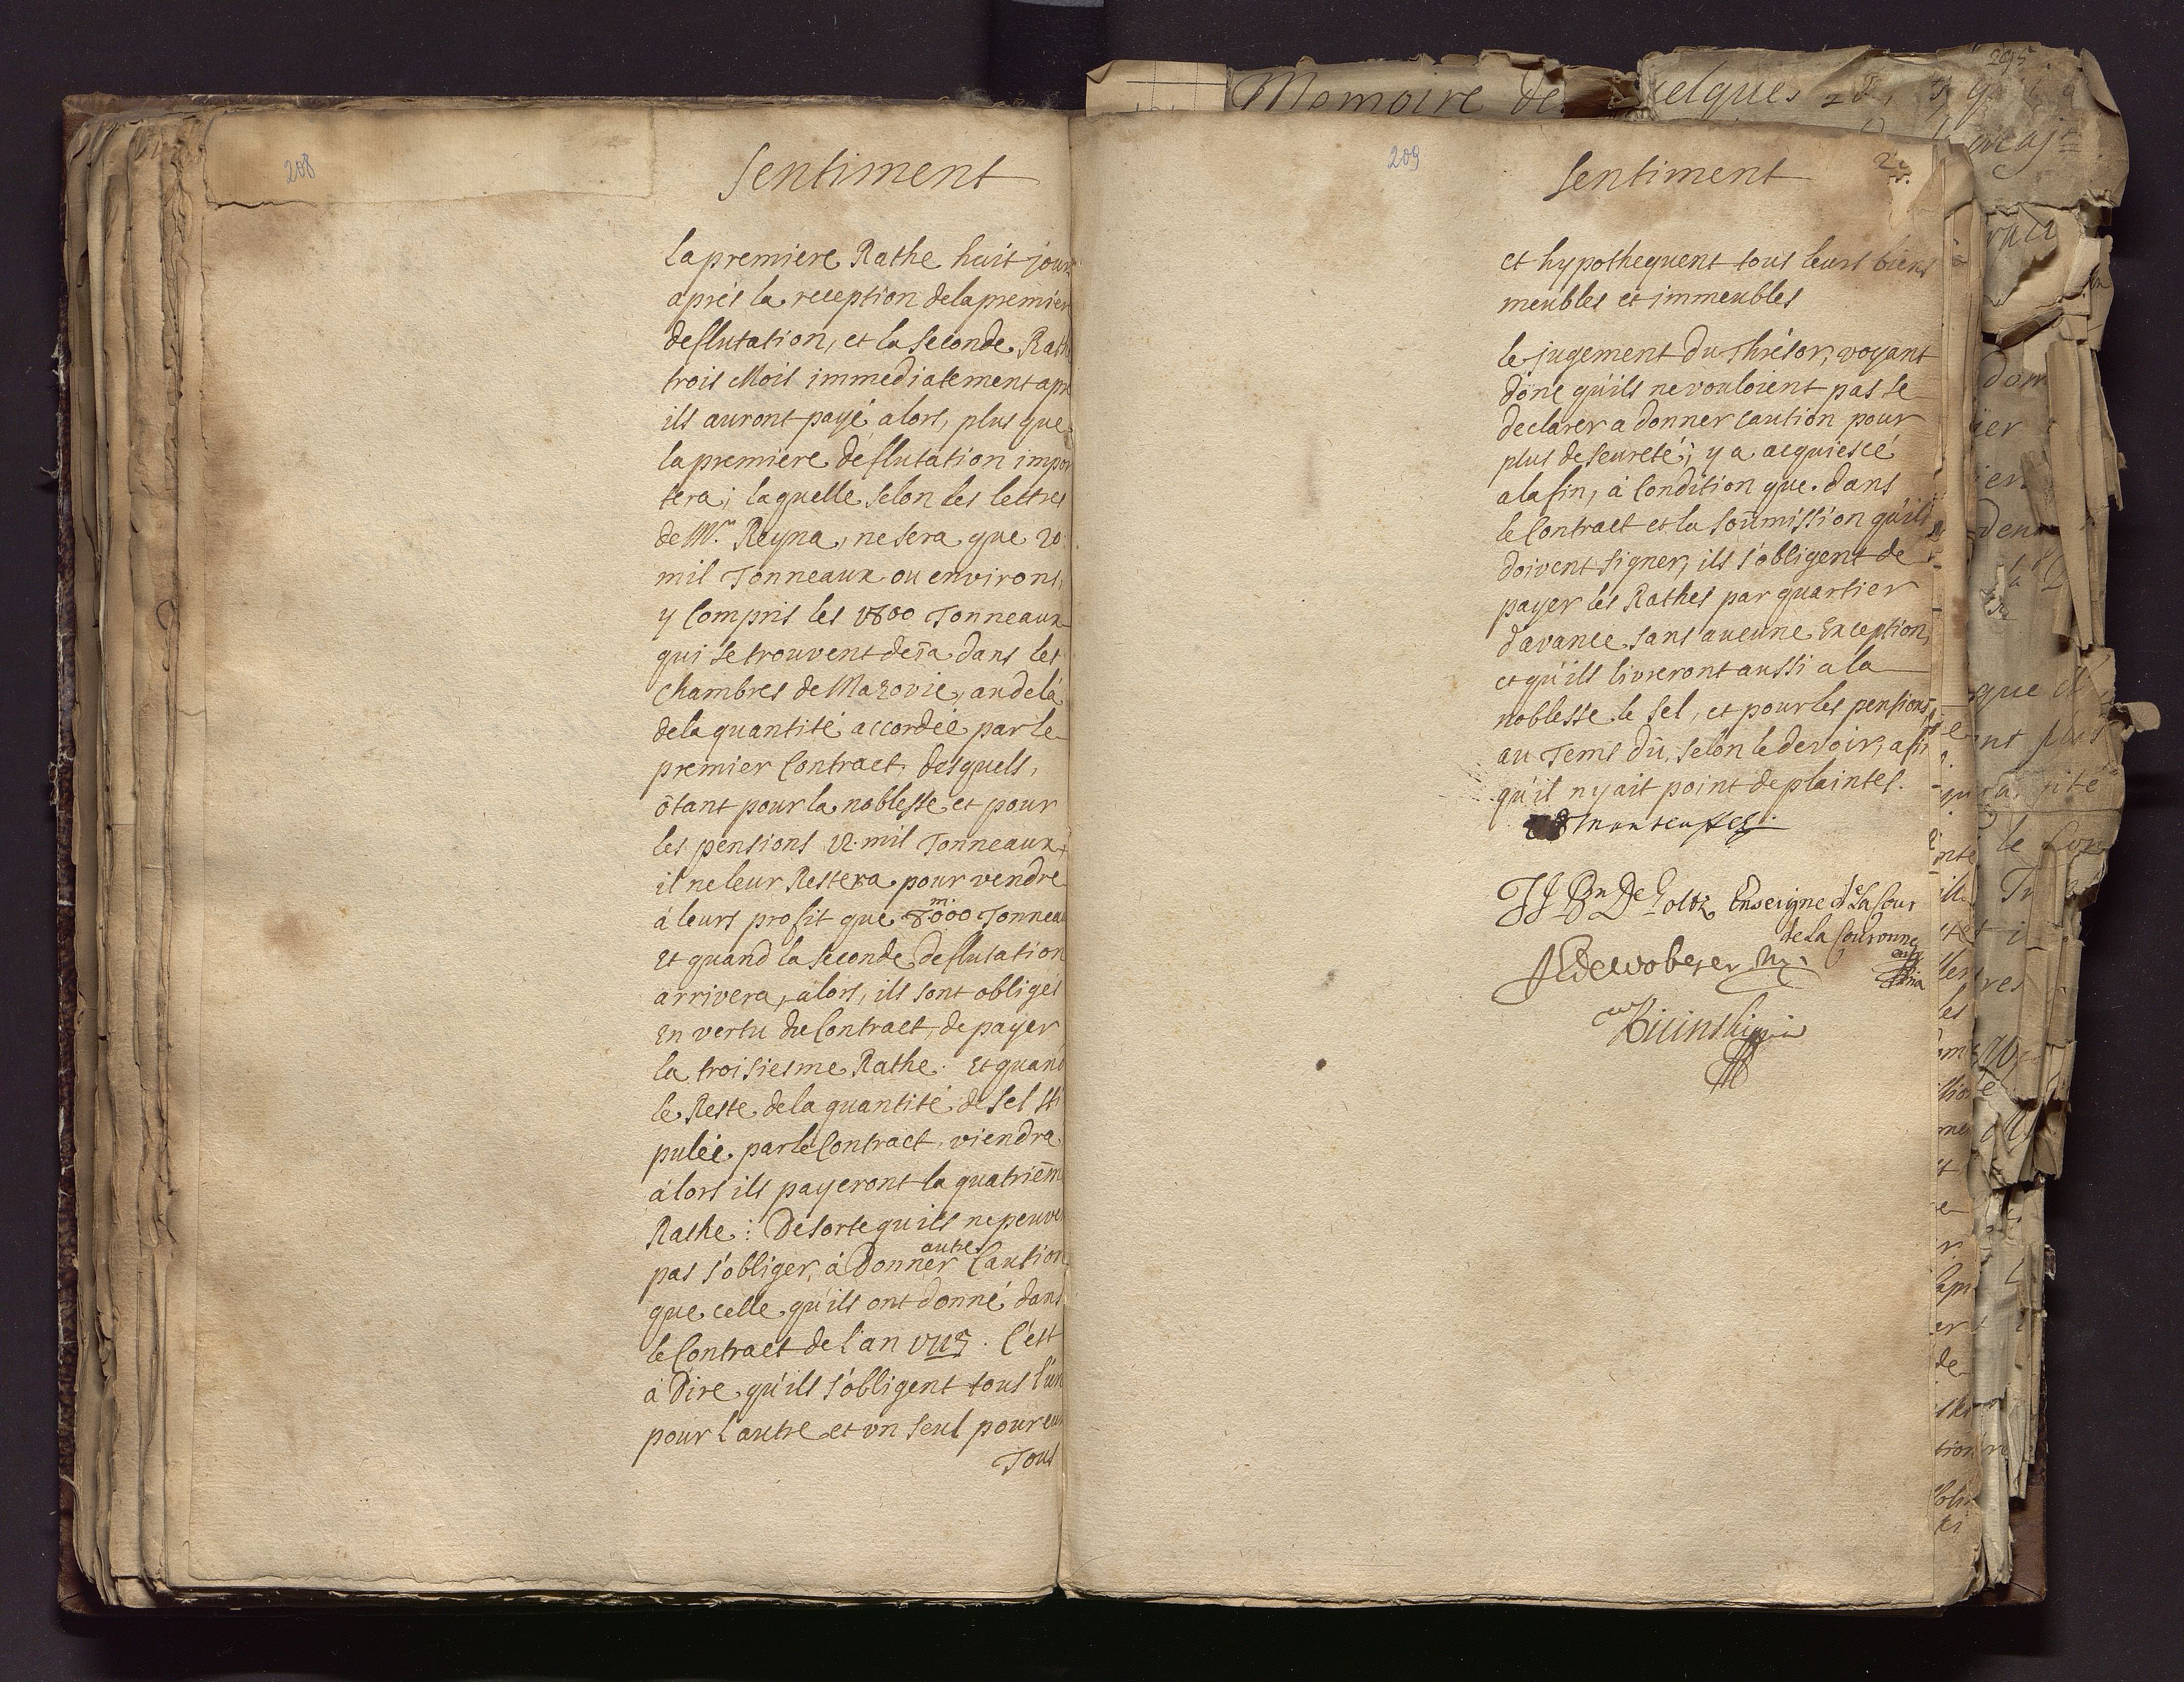 208
Sentiment
la premiere Rathe huit jours
aprés la reception dela premier
deflutation, et la seconde Rath
trois Mois immediatement apr
ils auront payé alors, plus que
la premiere deflutation impor
tera; laquelle selon les lettres
de Mr. Reyna, ne sera que 20
mil Tonneaux ou environs,
y Compris les 1800 Tonneaux
qui se trouvent deïa dans les
Chambres de Mazovie, audelà
dela quantité accordée par le
premier Contract, desquels,
ôtant pour la noblesse et pour
les pensions 12. mil Tonneaux,
il ne leur Restera pour vendre
à leurs profit que 8000 Tonneau
Et quand la seconde deflutation
arrivera, alors, ils sont obligés
En vertu du Contract, de payer
la troisiesme Rathe: Et quand
le Reste dela quantité de sel sti
pulée par le Contract, viendra
alors ils payeront la quatriém
Rathe: De sorte qu'ils ne peuve
pas s'obliger, à Donner autre Caution
que celle qu'ils ont donné dans
le Contract de l'an 1715. C'est
à Dire, qu'ils s'obligent tous l'un
pour l'autre et un seul pour eux
Tous
209
Sentiment
et hypothequent tous leurs biens
meubles et immeubles
le jugement du Thrésor, voyant
donc qu'ils ne vouloient pas se
declarer a donner caution pour
plus de seureté; y a acquiescé
ala fin, à Condition que dans
le Contract et la Soûmission qu'ils
doivent signer, ils s'obligent de
payer les Rathes par quartier
d'avance sans aucune Exception,
et qu'ils livreront aussi a la
noblesse le sel, et pour les pensions
au Tems dû, selon le devoir, afin
qu'il n'y ait point de plaintes.
JJ Bn De Goltz Enseigne de La Cour
de La Couronne
de wobeser
Kicinski
Memoire de quelques
295